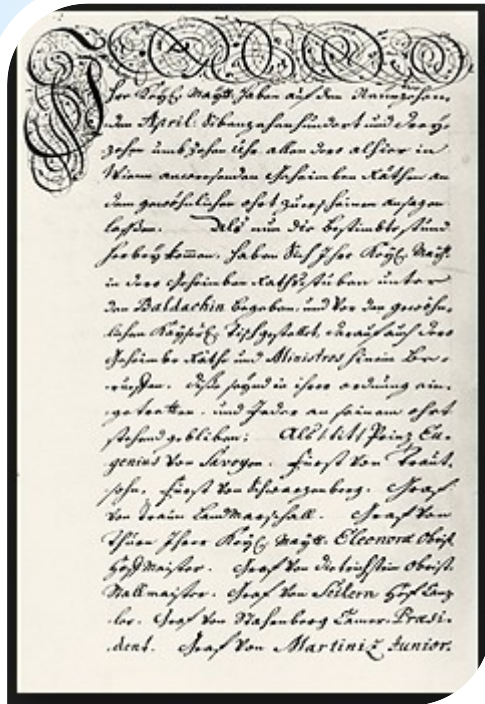 Ihre Keyl. Maytt. haben auf den Neunzehen-
den April. Sibenzehenhundert und drey-
zehen umb zehen Uhr allen dero alhier in
Wienn anwesenden Geheimben Räthen an
dem gewöhnlichen ohrt zuerscheinen ansagen
lassen. Als nun die bestimbte stund
herbeykommen, haben Sich Ihre Keyl. Maytt.
in dero Geheimben Rathsstuben unter
den Baldachin begeben, und vor den gewöhn-
lichen Keyserl. Tisch gestellet, darauf auch dero
Geheimbe Räthe und Ministros hinein Be-
rueffen. diese seynd in ihrer ordnung ein-
getretten, und Jeder an seinem ohrt
stehend gebliben: Als Prinz Eu-
genius von Savoyen. fürst von Traut-
sohn, fürst von Schwarzenberg. Graf
von Traun LandMarschall. Graf von
Thurn Ihrer Keyl. Maytt. Eleonora Obrist
Hoffmaister. Graf von dietrichstein Obrist
Stallmaister. Graf von Seilern Hof Canz-
ler. Graf von Stahrenberg Camer-Praesi-
dent. Graf von Martiniz Junior.